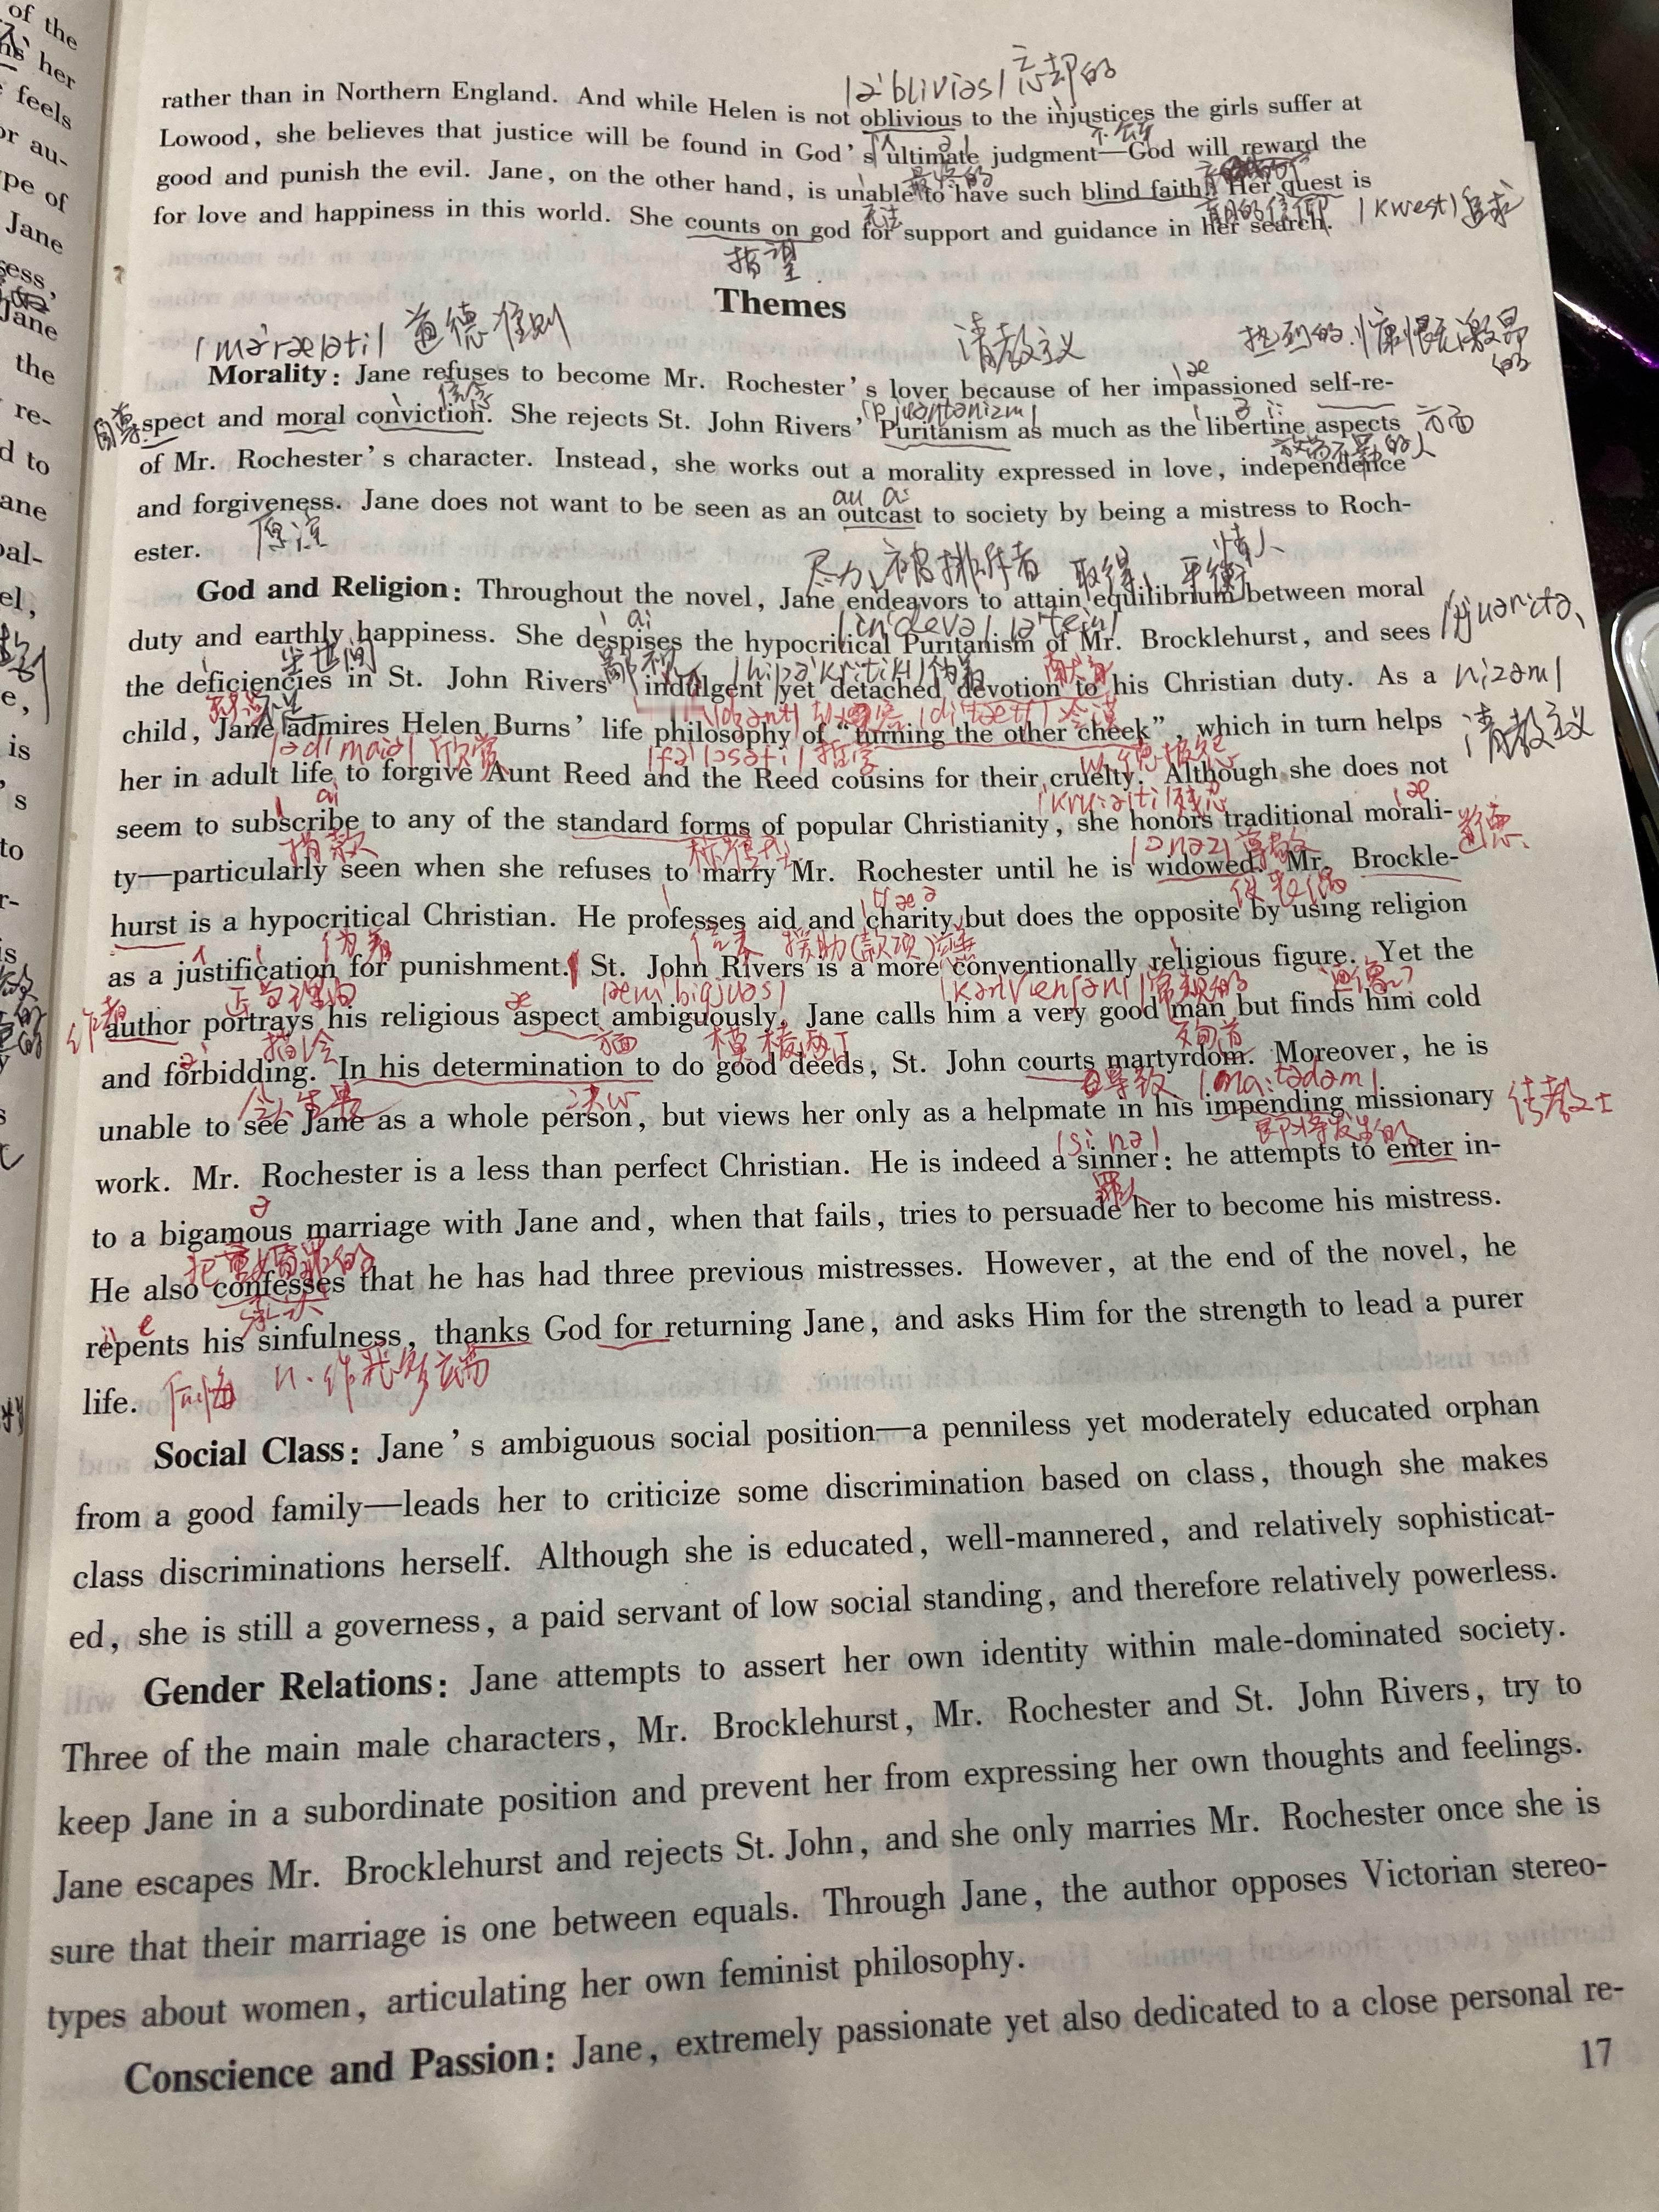 rather than in Northern England. And while Helen is not oblivious to the injustices the girls suffer at
Lowood, she believes that justice will be found in God's ultimate judgment—God will reward the
good and punish the evil. Jane, on the other hand, is unable to have such blind faith. Her quest is
for love and happiness in this world. She counts on god for support and guidance in her search.
忘却的
盲目的信仰 |kwest| 追求
指望
Themes
道德准则
清教主义
Morality: Jane refuses to become Mr. Rochester's lover because of her impassioned self-re-
spect and moral conviction. She rejects St. John Rivers' Puritanism as much as the libertine aspects
of Mr. Rochester's character. Instead, she works out a morality expressed in love, independence
and forgiveness. Jane does not want to be seen as an outcast to society by being a mistress to Roch-
ester.
自尊
信念
方面
尽力 被排斥者 取得 平衡 情人
God and Religion: Throughout the novel, Jane endeavors to attain equilibrium between moral
duty and earthly happiness. She despises the hypocritical Puritanism of Mr. Brocklehurst, and sees
the deficiencies in St. John Rivers' indulgent yet detached devotion to his Christian duty. As a
child, Jane admires Helen Burns' life philosophy of "turning the other cheek", which in turn helps
her in adult life to forgive Aunt Reed and the Reed cousins for their cruelty. Although she does not
seem to subscribe to any of the standard forms of popular Christianity, she honors traditional morali-
ty—particularly seen when she refuses to marry Mr. Rochester until he is widowed. Mr. Brockle-
hurst is a hypocritical Christian. He professes aid and charity but does the opposite by using religion
as a justification for punishment. St. John Rivers is a more conventionally religious figure. Yet the
author portrays his religious aspect ambiguously. Jane calls him a very good man but finds him cold
and forbidding. In his determination to do good deeds, St. John courts martyrdom. Moreover, he is
unable to see Jane as a whole person, but views her only as a helpmate in his impending missionary
work. Mr. Rochester is a less than perfect Christian. He is indeed a sinner: he attempts to enter in-
to a bigamous marriage with Jane and, when that fails, tries to persuade her to become his mistress.
He also confesses that he has had three previous mistresses. However, at the end of the novel, he
repents his sinfulness, thanks God for returning Jane, and asks Him for the strength to lead a purer
life.
清教主义
欣赏
哲学
捐款
尊敬
道德
伪善
作者
描绘
方面
决心
导致
即将发生的
传教士
罪人
承认
n. 作恶多端
Social Class: Jane's ambiguous social position—a penniless yet moderately educated orphan
from a good family—leads her to criticize some discrimination based on class, though she makes
class discriminations herself. Although she is educated, well-mannered, and relatively sophisticat-
ed, she is still a governess, a paid servant of low social standing, and therefore relatively powerless.
Gender Relations: Jane attempts to assert her own identity within male-dominated society.
Three of the main male characters, Mr. Brocklehurst, Mr. Rochester and St. John Rivers, try to
keep Jane in a subordinate position and prevent her from expressing her own thoughts and feelings.
Jane escapes Mr. Brocklehurst and rejects St. John, and she only marries Mr. Rochester once she is
sure that their marriage is one between equals. Through Jane, the author opposes Victorian stereo-
types about women, articulating her own feminist philosophy.
Conscience and Passion: Jane, extremely passionate yet also dedicated to a close personal re-
17